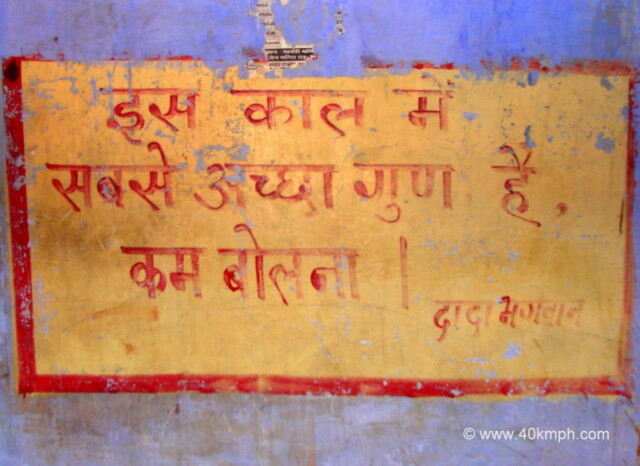 इस काल में
सबसे अच्छा गुण है,
कम बोलना |
दादा भगवान
© www.40kmph.com